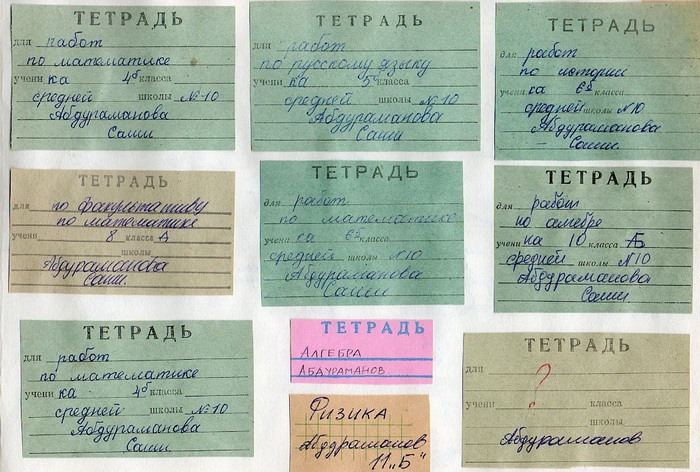 ТЕТРАДЬ
для работ
по математике
учени ка 4б класса
средней школы №10
Абдураманова
Саши
ТЕТРАДЬ
для работ
по русскому языку
учени ка 5б класса
средней школы №10
Абдураманова
Саши
ТЕТРАДЬ
для работ
по истории
учени ка 6б класса
средней школы N10
Абдураманова
Саши.
ТЕТРАДЬ
для по факультативу
по математике
учени 8 класса А
школы
Абдураманова
Саши.
ТЕТРАДЬ
для работ
по математике
учени ка 6б класса
средней школы N10
Абдураманова
Саши
ТЕТРАДЬ
для работ
по алгебре
учени ка 10 класса Б
средней школы N10
Абдураманова
Саши
ТЕТРАДЬ
для работ
по математике
учени ка 4б класса
средней школы №10
Абдураманова
Саши
ТЕТРАДЬ
АЛГЕБРА
АБДУРАМАНОВ
Физика
Абдураманов
11 „Б"
ТЕТРАДЬ
для ?
учени класса
школы
Абдураманов